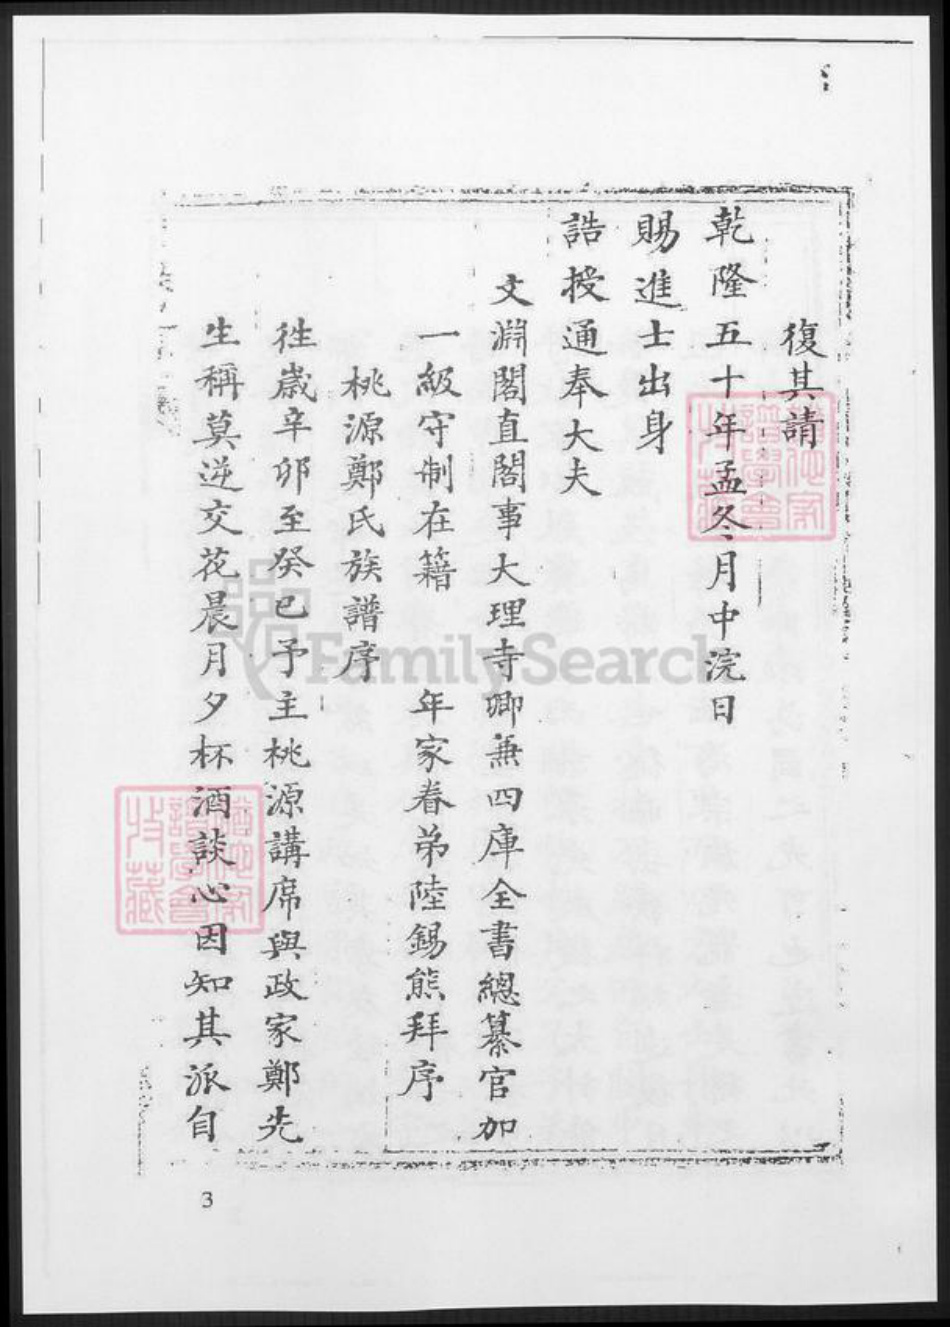 復其請
乾隆五十年孟冬月中浣日
賜進士出身
誥授通奉大夫
文淵閣直閣事大理寺卿兼四庫全書總纂官加
一級守制在籍 年家眷弟陸錫熊拜序
桃源鄭氏族譜序
徃嵗辛卯至癸巳予主桃源講席與政家鄭先
生稱莫逆交花晨月夕杯酒談心因知其派自
3
FamilySearch
譜學會
收藏
譜學會
收藏